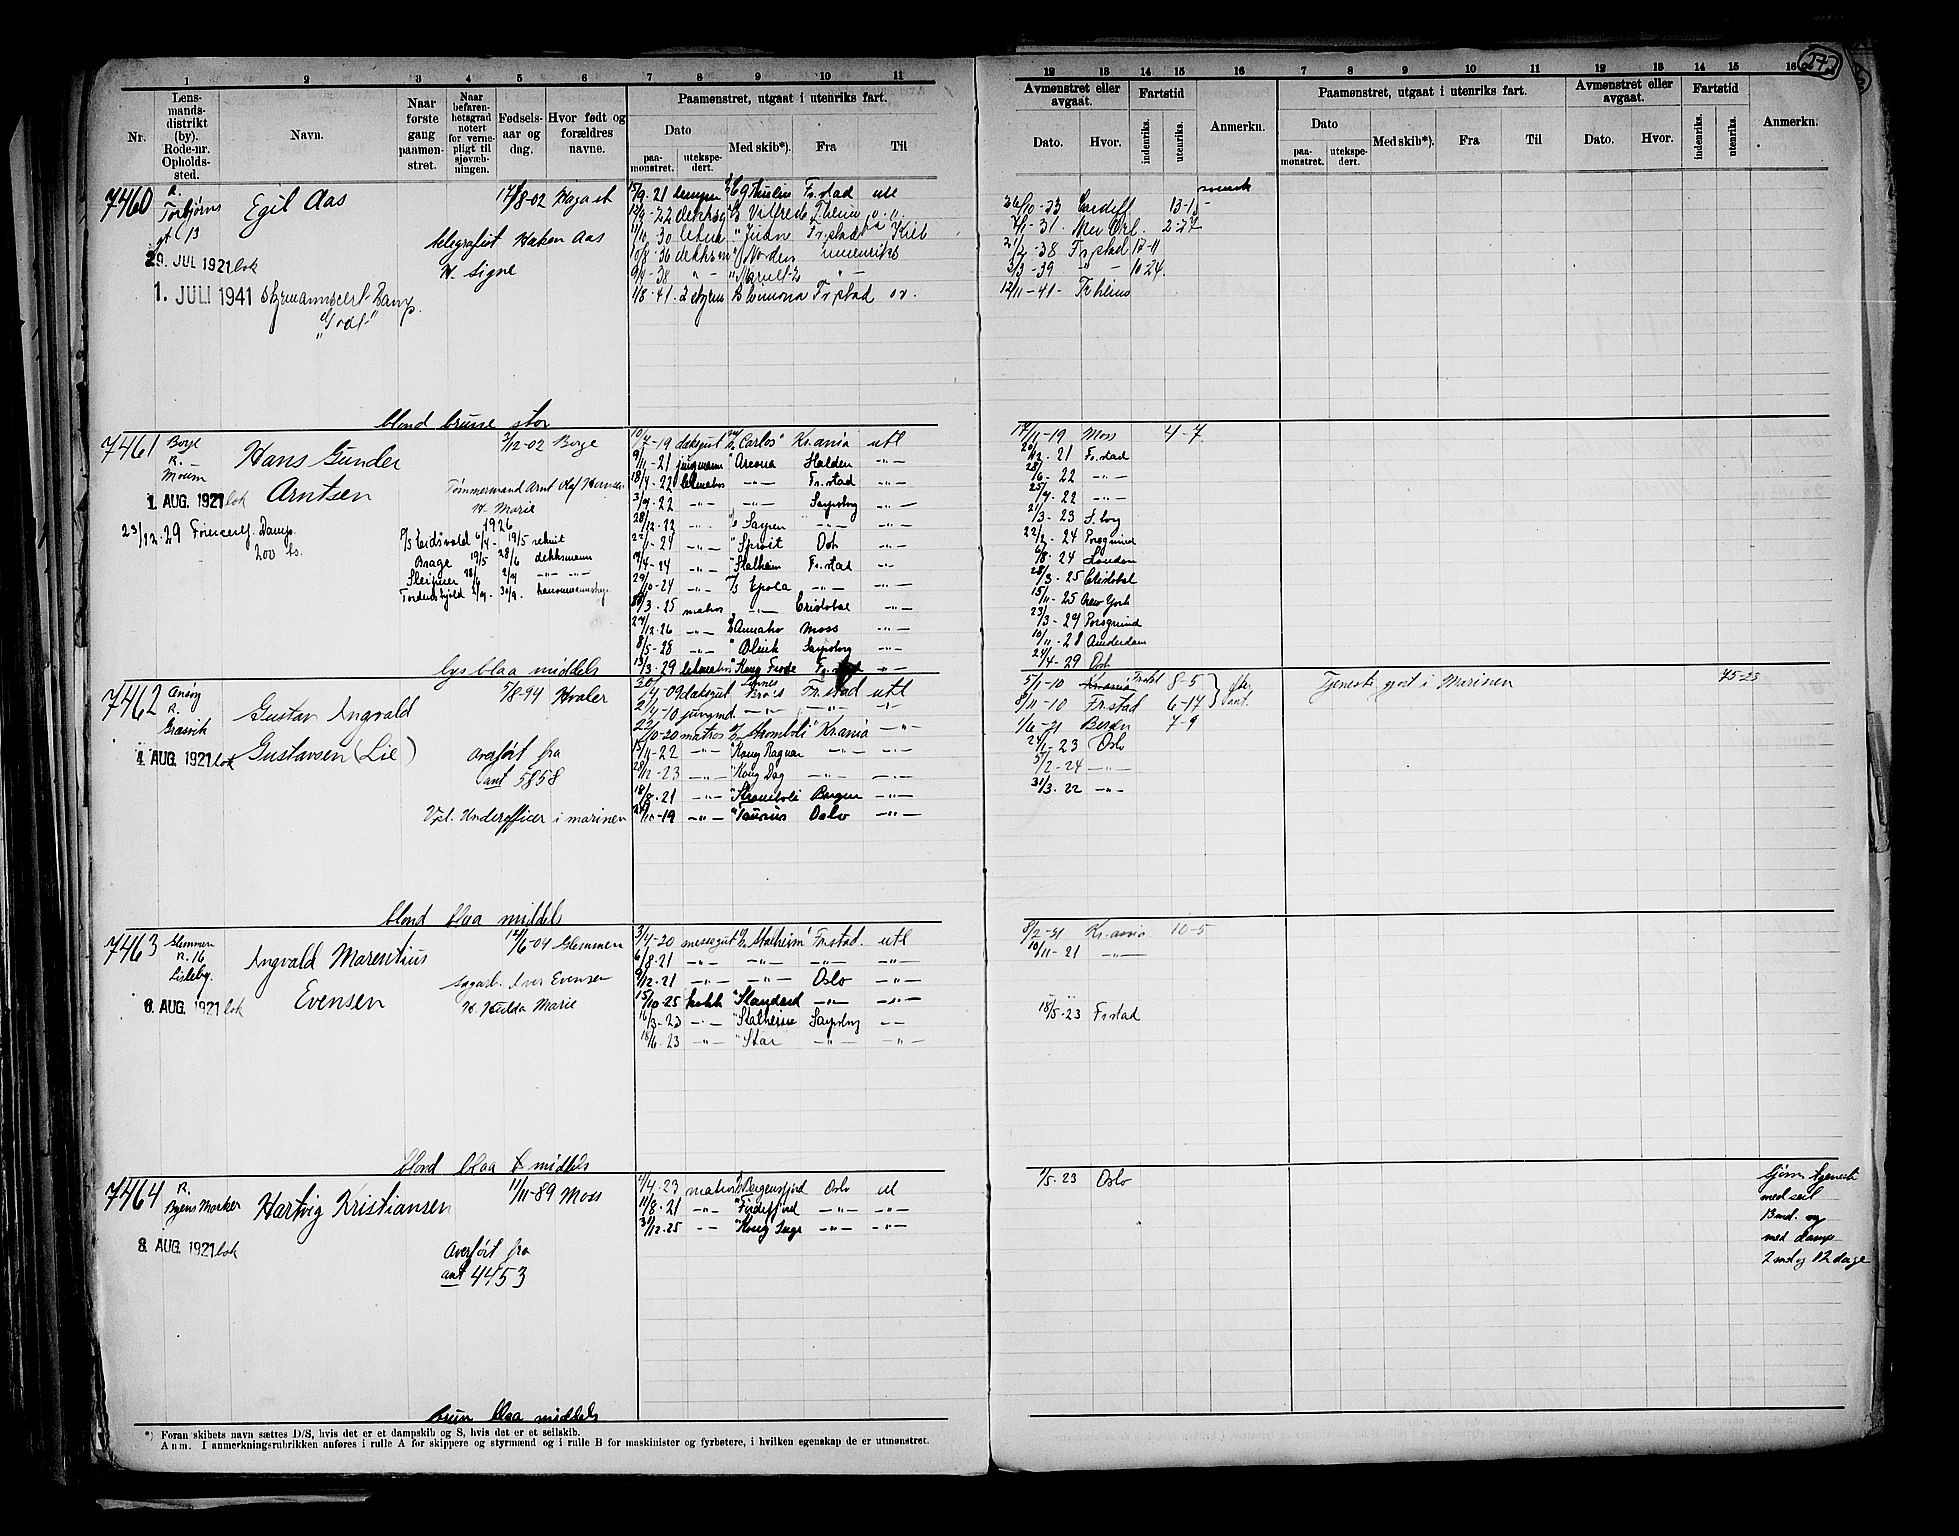 272
1 2 3 4 5 6 7 8 9 10 11
12 13 14 15 16 7 8 9 10 11 12 13 14 15 16
Nr.
Lens-
mands-
distrikt
(by).
Rode-nr.
Opholds-
sted.
Navn.
Naar
første
gang
paamøn-
stret.
Naar
befaren-
hetsgrad
notert
for verne-
pligt til
sjøvæb-
ningen.
Fødsels-
aar og
dag.
Hvor født og
forældres
navne.
Paamønstret, utgaat i utenriks fart.
Dato
paa-
mønstret.
utekspe-
dert.
Med skib*).
Fra
Til
Avmønstret eller
avgaat.
Dato.
Hvor.
Fartstid
indenriks.
utenriks.
Anmerkn.
Paamønstret, utgaat i utenriks fart.
Dato
paa-
mønstret.
utekspe-
dert.
Med skib*).
Fra
Til
Avmønstret eller
avgaat.
Dato.
Hvor.
Fartstid
indenriks.
utenriks.
Anmerkn.
7460
R.
Torbjørns
gt 13
Egil Aas
17/8-02
telegrafist Haken Aas
H. Signe
29. JUL 1921 lok
1. JULI 1941
15/9-21 Fr.stad utl
Fr.stad Kiel
dekksm Norden innenriks
1/8-41. 2 styrm Fr.stad
26/10-23 Cardiff 13-15
-31. New Orl. 2-27
21/2-38 Fr.stad 12-11
3/3-39 -"- 10-24.
12/11-41-
blond brune stor
7461
Borge
R. —
Moum
Hans Gunder
Arntsen
3/12-02 Borge
Tømmermand Arnt Olaf Hansen
H. Marie
1. AUG. 1921 lok
23/12-29
200 ts.
1926
P/S Eidsvold 6/4- 19/5 rekrut
Brage 19/5 28/6 dekksmann
Sleipner 28/6 2/9 -"- -"-
Tordenskjold 2/9- 30/9.
10/7-19 dæksgut "Carlos" Kr.ania utl
9/11-21 jungmann " Areona Halden -"-
18/4-22 letmatros -"- Fr.stad -"-
3/9-22 -"- -"- Sarpsborg -"-
28/12-22 -"- Sarpen -"- -"-
22/1-24 -"- " Sproit Osl. -"-
14/4-24 -"- " Stalheim Fr.stad -"-
29/10-24 -"- -"- -"-
30/3-25 matros -"- Cristobal -"-
27/12-26 -"- Annaho Moss -"-
8/5-28 -"- Sarpsborg -"-
13/3-29 letmatros " Kong Frode Fr.stad -"-
17/11-19 Moss 4-7
20/12-21 Fr.stad
28/6-22 -"-
25/9-22 -"-
21/3-23 S.borg
22/2-24 Porsgrund
6/8-24 London
28/3-25 Cristobal
15/11-25 New York
23/3-29 Porsgrund
10/11-28 Amsterdam
24/4-29 Osl.
lys blaa middels
7462
Onsøy
R.
Græsvik
Gustav Ingvald
Gustavsen (Lie)
5/8-94 Hvaler
4. AUG. 1921 lok
Overført fra
ant 5858
Vpl. Underofficer i marinen
30/4-09 dæksgut Fr.stad utl
2/4-10 jungmd. -"- -"- -"-
22/10-20 matros Stromboli" Kr.ania -"-
15/11-22 -"- " Kong Ragnar -"- -"-
28/12-23 -"- " Kong Dag -"- -"-
18/8-21 -"- " Stromboli Bergen -"-
24/10-19 -"- " Taurus Oslo -"-
5/1-10 Kr.ania Fr.std 8-5
8/11-10 Fr.stad 6-14
1/6-21 Bergen 7-9
24/1-23 Oslo
5/2-24 -"-
31/3-22 -"-
Tjeneste gjort i Marinen 75-23
blond blaa middels
7463
Glemmen
R. 16
Lisleby.
Ingvald Marentius
Evensen
12/6-04 Glemmen
sagarb. Iver Evensen
H. Hulda Marie
6. AUG. 1921 lok
3/4-20 messegut "Stalheim" Fr.stad utl
6/8-21 -"- -"- -"- -"-
9/12-21 -"- -"- Oslo -"-
15/10-25 kokk " Standard -"- -"-
16/3-23 -"- " Stalheim Sarpsborg -"-
18/6-23 -"- " Star -"- -"-
8/2-21 Kr.ania 10-5
10/11-21 -"-
18/5-23 Fr.stad
blond blaa middels
7464
R.
Byens Marker
Hartvig Kristiansen
11/11-89 Moss
8. AUG. 1921 lok
Overført fra
ant 4453
4/4-23 matros Bergensfjord Oslo ut
11/8-21 -"- -"- -"-
31/12-25 -"- " Kong Inge -"- -"-
1/5-23 Oslo
tjeneste
med seil
13 md. og
med damp
2 md og 12 dage
brun blaa middels
*) Foran skibets navn sættes D/S, hvis det er et dampskib og S, hvis det er et seilskib.
Anm. I anmerkningsrubrikken anføres i rulle A for skippere og styrmænd og i rulle B for maskinister og fyrbøtere, i hvilken egenskap de er utmønstret.